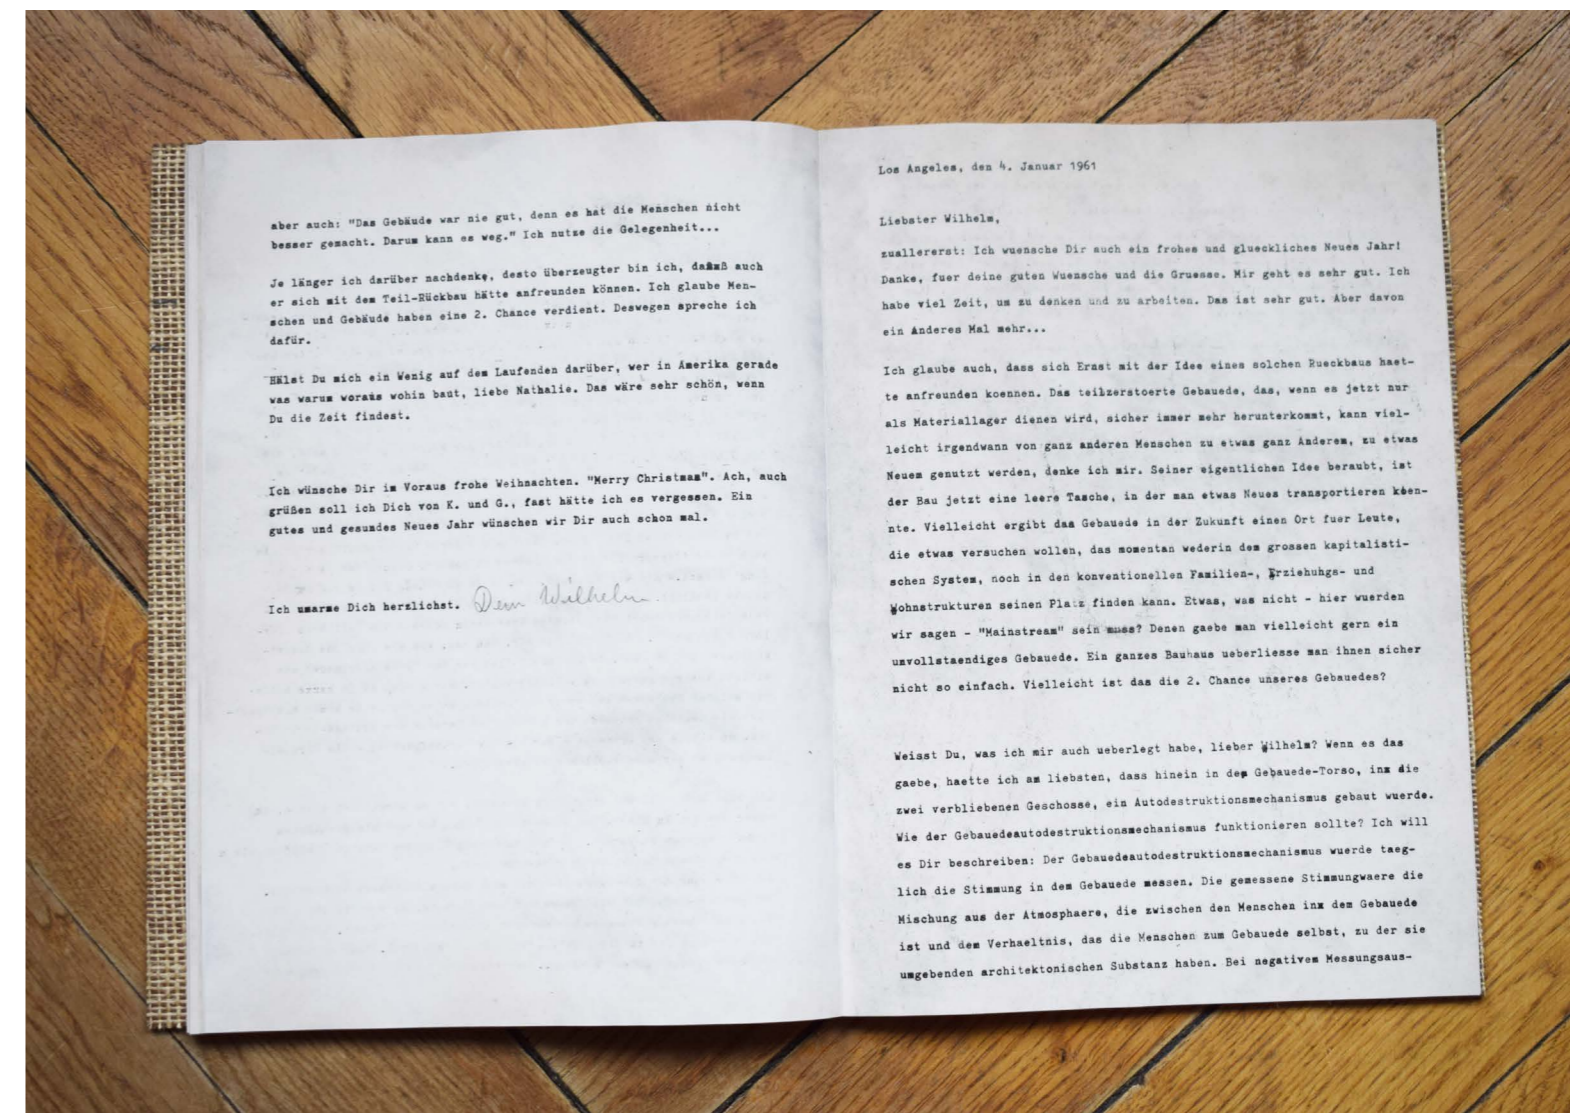 aber auch: "Das Gebäude war nie gut, denn es hat die Menschen nicht
besser gemacht. Darum kann es weg." Ich nutze die Gelegenheit...
Je länger ich darüber nachdenke, desto überzeugter bin ich, daß auch
er sich mit dem Teil-Rückbau hätte anfreunden können. Ich glaube Men-
schen und Gebäude haben eine 2. Chance verdient. Deswegen spreche ich
dafür.
Hälst Du mich ein Wenig auf dem Laufenden darüber, wer in Amerika gerade
was warum woraus wohin baut, liebe Nathalie. Das wäre sehr schön, wenn
Du die Zeit findest.
Ich wünsche Dir im Voraus frohe Weihnachten. "Merry Christmas". Ach, auch
grüßen soll ich Dich von K. und G., fast hätte ich es vergessen. Ein
gutes und gesundes Neues Jahr wünschen wir Dir auch schon mal.
Ich umarme Dich herzlichst. Dein Wilhelm
Los Angeles, den 4. Januar 1961
Liebster Wilhelm,
zuallererst: Ich wuensche Dir auch ein frohes und glueckliches Neues Jahr!
Danke, fuer deine guten Wuensche und die Gruesse. Mir geht es sehr gut. Ich
habe viel Zeit, um zu denken und zu arbeiten. Das ist sehr gut. Aber davon
ein Anderes Mal mehr...
Ich glaube auch, dass sich Ernst mit der Idee eines solchen Rueckbaus haet-
te anfreunden koennen. Das teilzerstoerte Gebaeude, das, wenn es jetzt nur
als Materiallager dienen wird, sicher immer mehr herunterkommt, kann viel-
leicht irgendwann von ganz anderen Menschen zu etwas ganz Anderem, zu etwas
Neuem genutzt werden, denke ich mir. Seiner eigentlichen Idee beraubt, ist
der Bau jetzt eine leere Tasche, in der man etwas Neues transportieren koen-
nte. Vielleicht ergibt das Gebauede in der Zukunft einen Ort fuer Leute,
die etwas versuchen wollen, das momentan wederin dem grossen kapitalisti-
schen System, noch in den konventionellen Familien-, Erziehuhgs- und
Wohnstrukturen seinen Platz finden kann. Etwas, was nicht - hier wuerden
wir sagen - "Mainstream" sein muss? Denen gaebe man vielleicht gern ein
unvollstaendiges Gebauede. Ein ganzes Bauhaus ueberliesse man ihnen sicher
nicht so einfach. Vielleicht ist das die 2. Chance unseres Gebauedes?
Weisst Du, was ich mir auch ueberlegt habe, lieber Wilhelm? Wenn es das
gaebe, haette ich am liebsten, dass hinein in dem Gebauede-Torso, inx die
zwei verbliebenen Geschosse, ein Autodestruktionsmechanismus gebaut wuerde.
Wie der Gebauedeautodestruktionsmechanismus funktionieren sollte? Ich will
es Dir beschreiben: Der Gebauedeautodestruktionsmechanismus wuerde taeg-
lich die Stimmung in dem Gebauede messen. Die gemessene Stimmungwaere die
Mischung aus der Atmosphaere, die zwischen den Menschen inx dem Gebauede
ist und dem Verhaeltnis, das die Menschen zum Gebauede selbst, zu der sie
umgebenden architektonischen Substanz haben. Bei negativem Messungsaus-